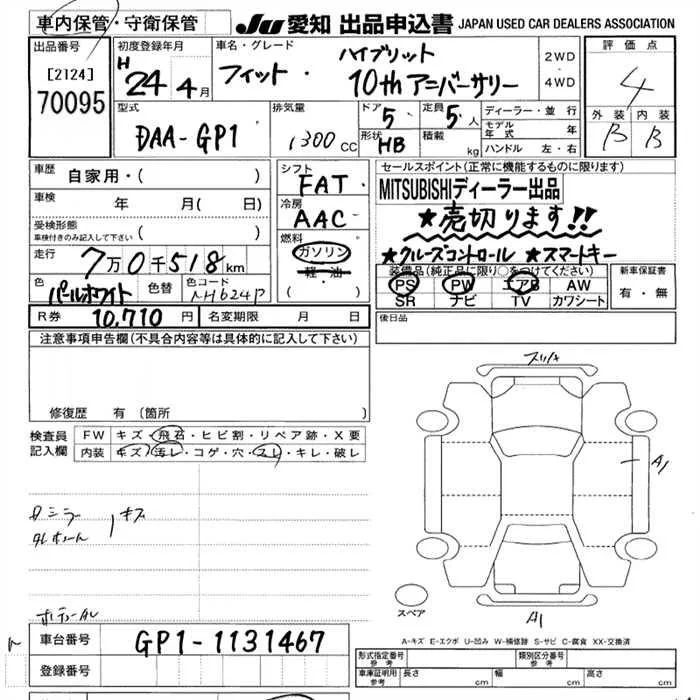 車内保管・守衛保管
JU 愛知 出品申込書 JAPAN USED CAR DEALERS ASSOCIATION
出品番号
[2124]
70095
初度登録年月
H 24年 4月
車名・グレード
フィット・ ハイブリット
10th アニバーサリー
2WD
・
4WD
評価点
4
外装 内装
B B
型式
DAA-GP1
排気量
1300 cc
ドア 5
定員 5人
形状 HB
積載 kg
ディーラー・並行
モデル年式 年
ハンドル 左・右
車歴 自家用・( )
車検 年 月( 日)
受検形態
車検付きのみ記入して下さい ( )
走行 7万0千518km
色 パールホワイト
色替
色コード NH624P
R券 10,710 円
名変期限 月 日
シフト
FAT
冷房
AAC
燃料
ガソリン
軽・油
( )
セールスポイント(正常に機能するものに限ります)
MITSUBISHIディーラー出品
★売切ります!!
★クルーズコントロール ★スマートキー
装備品(純正品に限り○をつけてください)
PS PW エアB AW
SR ナビ TV カワシート
新車保証書
有・無
後日品
注意事項申告欄(不具合内容等は具体的に記入して下さい)
修復歴 有(箇所
検査員
記入欄
FW キズ・飛石・ヒビ割・リペア跡・X要
内装 キズ・汚レ・コゲ・穴・スレ・キレ・破レ
キズ
A1
スペア
A1
A-キズ E-エクボ U-凹み W-補修跡 S-サビ C-腐食 XX-交換済
車台番号 GP1-1131467
登録番号
形式指定番号 参考
類別区分番号 参考
車庫証明用 参考 長さ cm 幅 cm 高さ cm